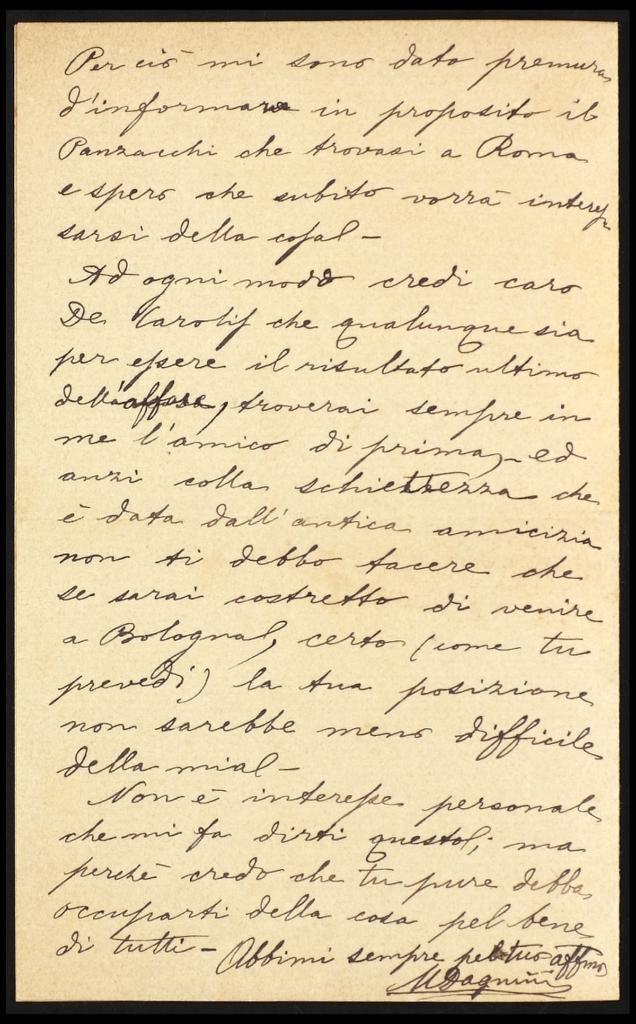 Perciò mi sono dato premura
d'informare in proposito il
Panzacchi che trovasi a Roma
e spero che subito vorrà interes-
sarsi della cosa -
Ad ogni modo credi caro
De Carolis che qualunque sia
per essere il risultato ultimo
dell'affare, troverai sempre in
me l'amico di prima, - ed
anzi colla schiettezza che
è data dall'antica amicizia
non ti debbo tacere che
se sarai costretto di venire
a Bologna, certo (come tu
prevedi) la tua posizione
non sarebbe meno difficile
della mia -
Non è interesse personale
che mi fa dirti questo; ma
perchè credo che tu pure debba
occuparti della cosa pel bene
di tutti - Abbimi sempre pel tuo affmo
MDagnini